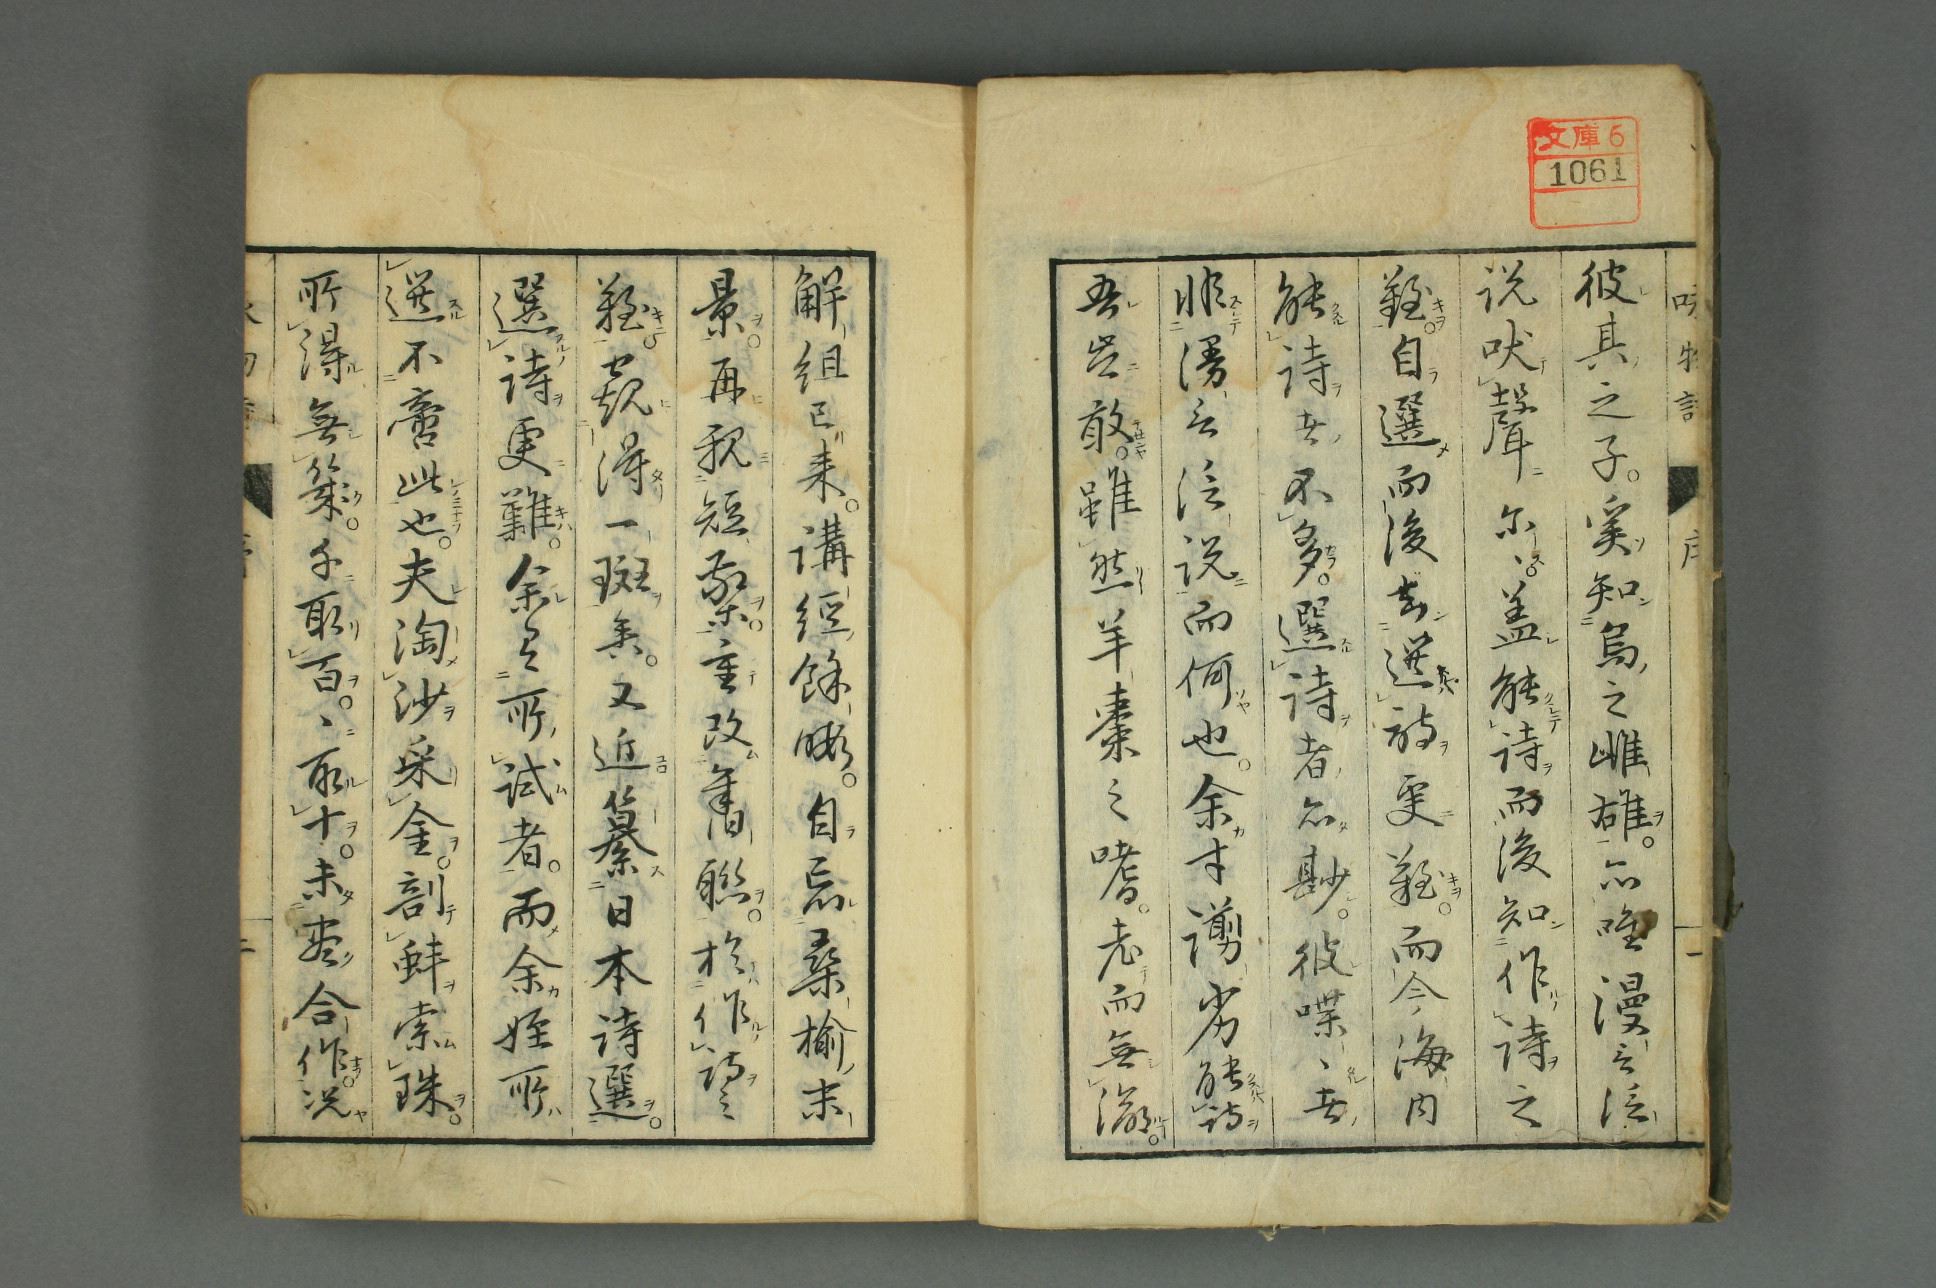 文庫6
1061
詠物詩
序
一
彼其之子。奚知烏之雌雄。亦唯漫言泛
説吠聲尓〻。蓋能詩而後知作詩之
難。自選而後知選詩更難。而今海内
能詩者不多。選詩者亦尠。彼喋〻者
非漫言泛説而何也。余才謭劣能詩
吾豈敢。雖然羊棗之嗜。老而無衰。
解組已来。講経餘暇。自忘桑楡末
景。再親短檠。重改舊聯。於作詩之
難。窺得一斑矣。又近纂日本詩選。
選詩更難。余之所試者。而余姪所
選不啻此也。夫淘沙采金。剖蚌索珠。
所得無幾。千取百。〻取十。未盡合作。況